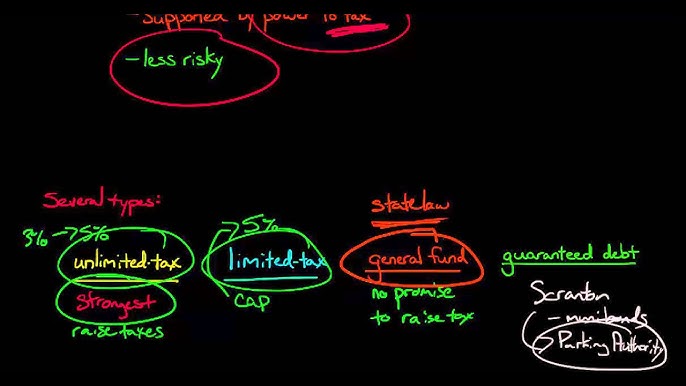 - Supported by power to tax
- less risky
Several types:
3% → 5%
unlimited-tax
Strongest
raise taxes
5%
limited-tax
cap
state law
general fund
no promise
to raise tax
guaranteed debt
Scranton
- munibonds
Parking Authority